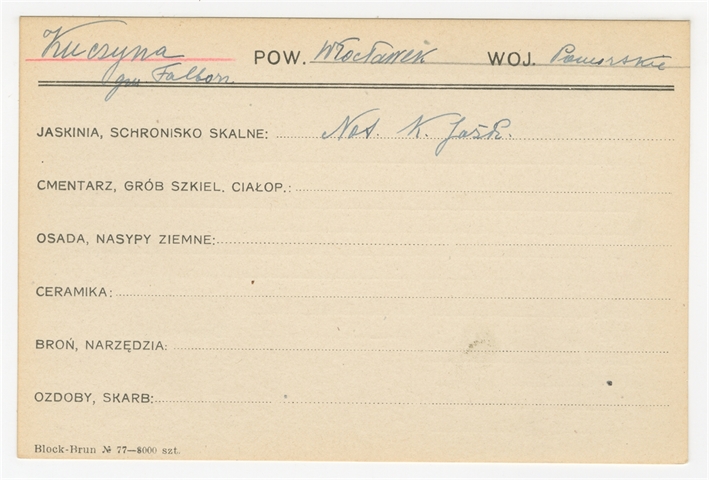 Kuczyna POW. Włocławek WOJ. Pomorskie
gm Falborz
JASKINIA, SCHRONISKO SKALNE: Not. K. Jażdż.
CMENTARZ, GRÓB SZKIEL. CIAŁOP.:
OSADA, NASYPY ZIEMNE:
CERAMIKA:
BROŃ, NARZĘDZIA:
OZDOBY, SKARB:
Block-Brun № 77—8000 szt.